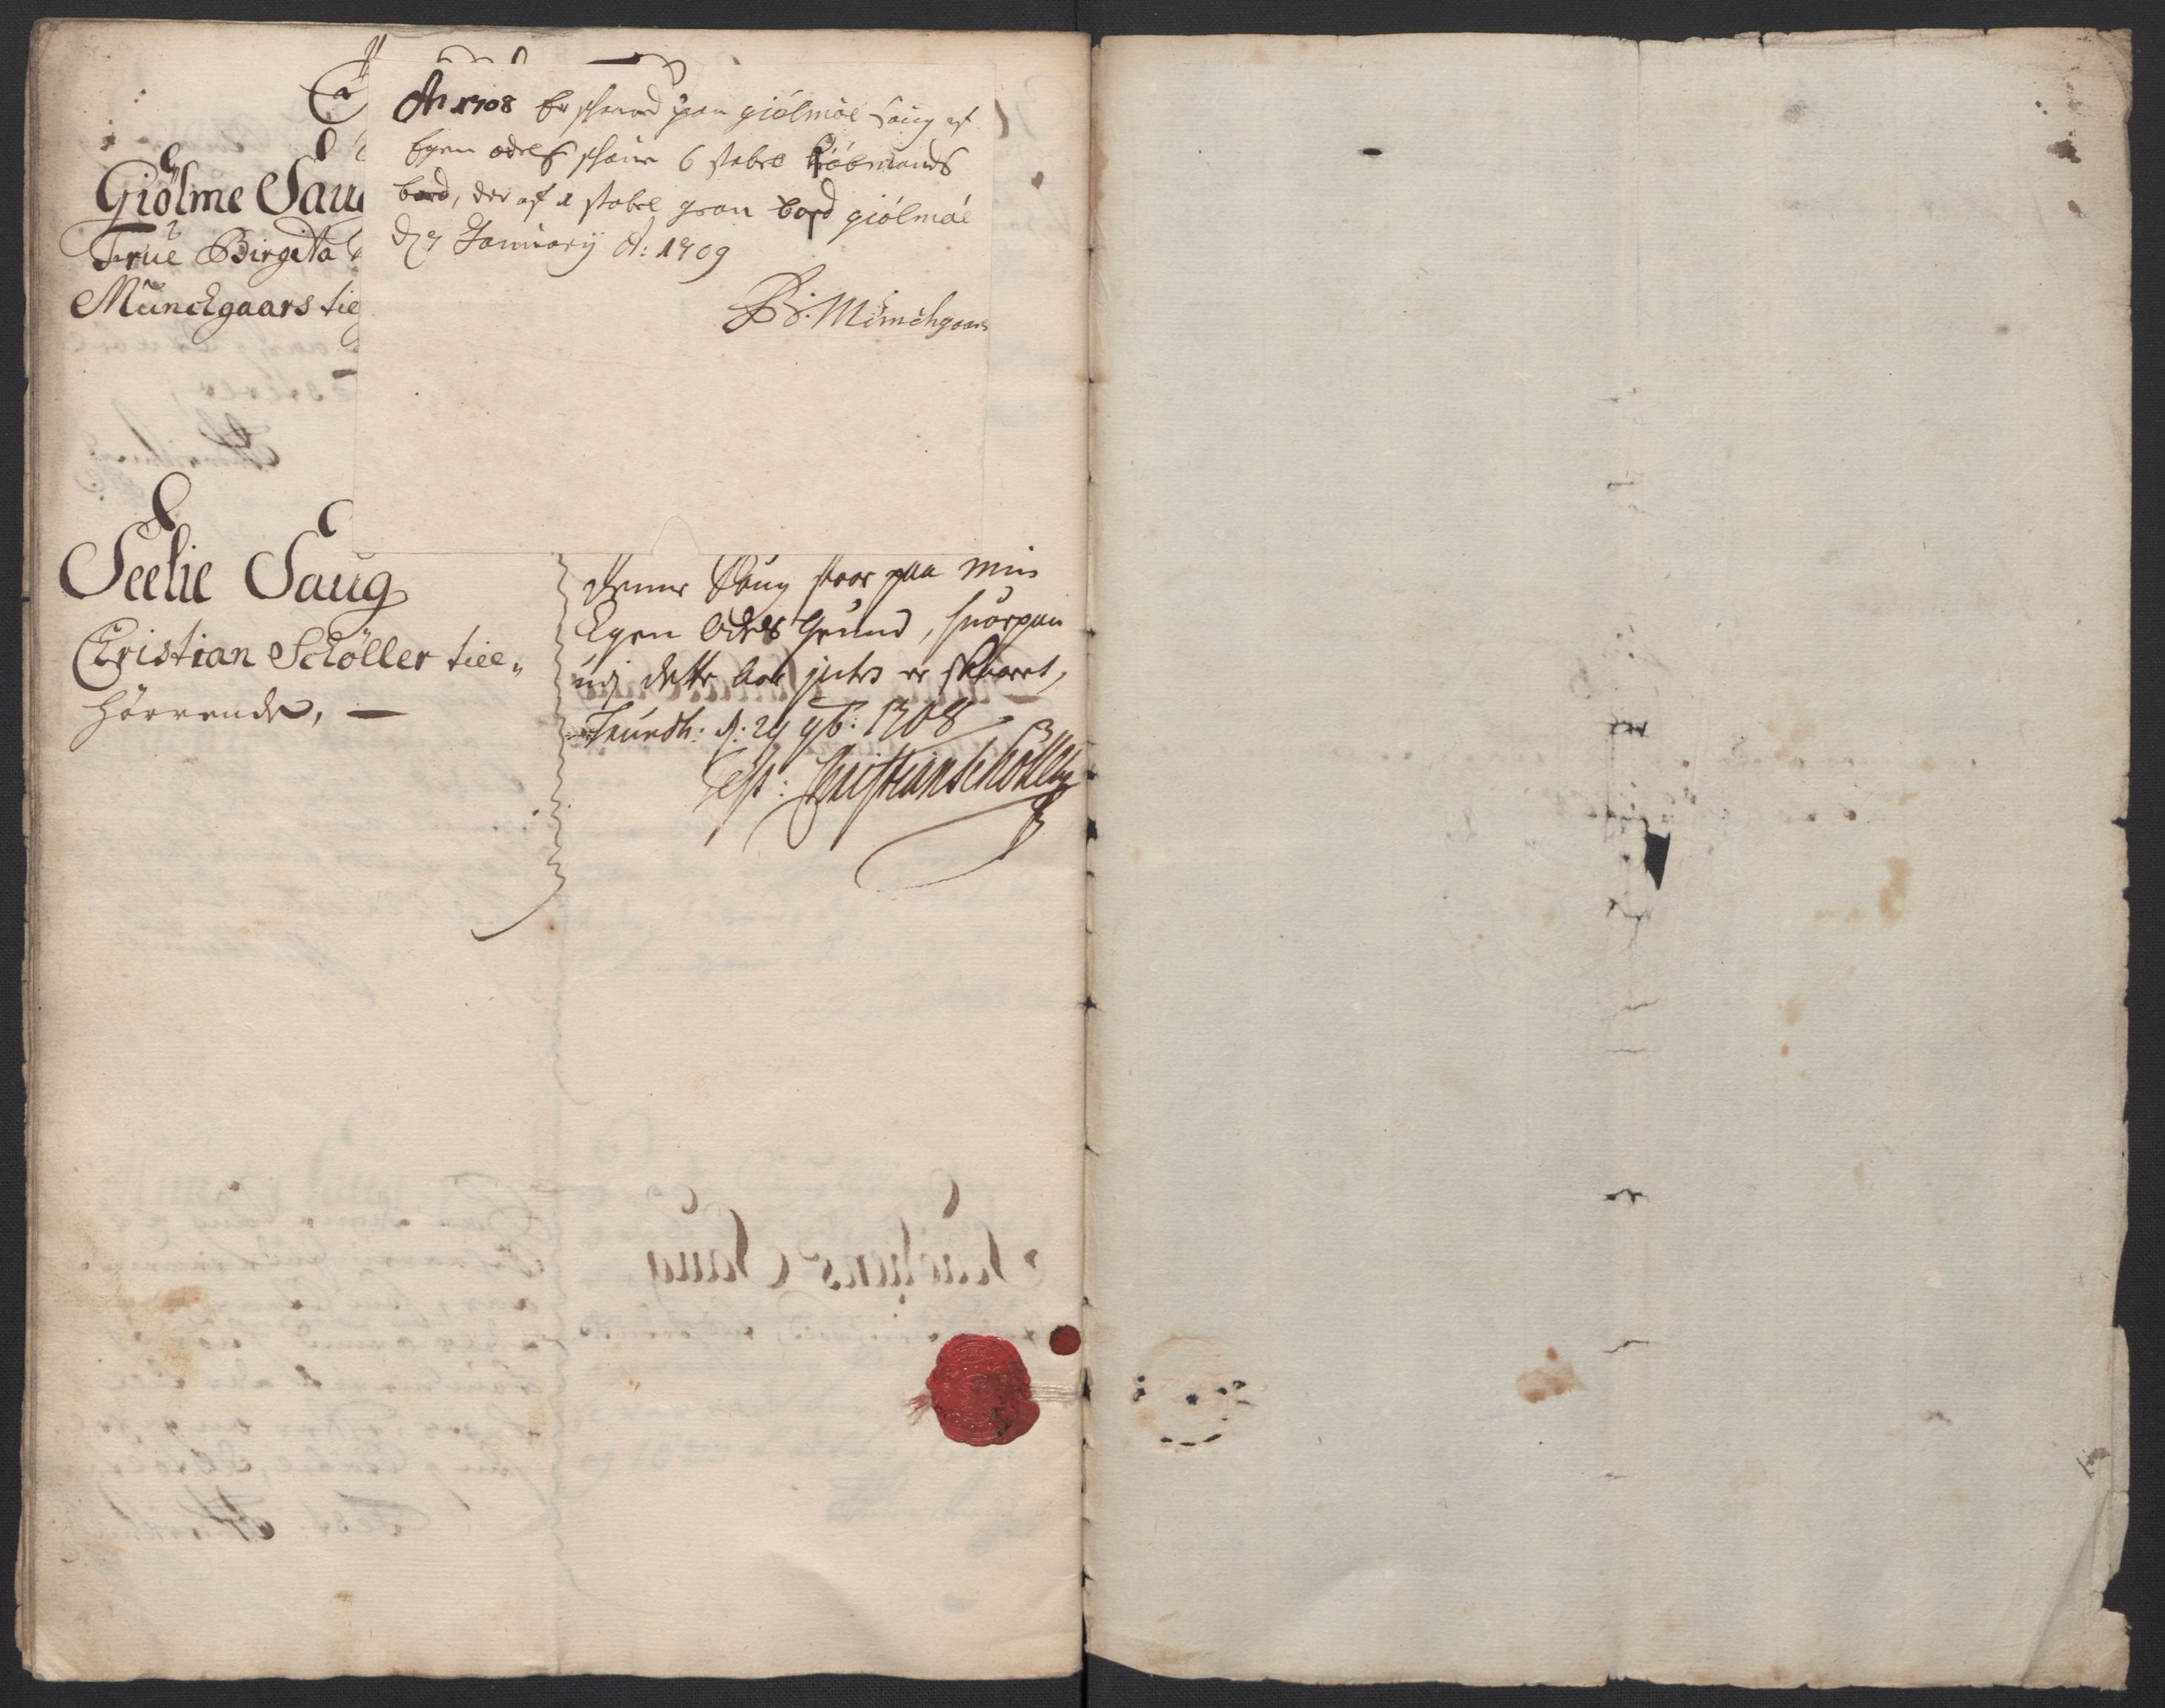 Giölme Saug
Frue Birgita
Münckgaars tie
Ao 1708 Er skaared paa giölmoe Saug af
Egen odels skaue 6 stabel kiöbmands
bord, der af 1 stabel gran bord giölmoe
d 7 Januarij Ao: 1709
B: Münchgaars
Seelie Saug
Christian Schöller tiel„
hörrende,
Denne Saug staar paa min
Egen Odels Grund, huorpaa
udj dette aar intes er skaaret,
Trundh: d: 29 9b: 1708
Test: Christian Schöller